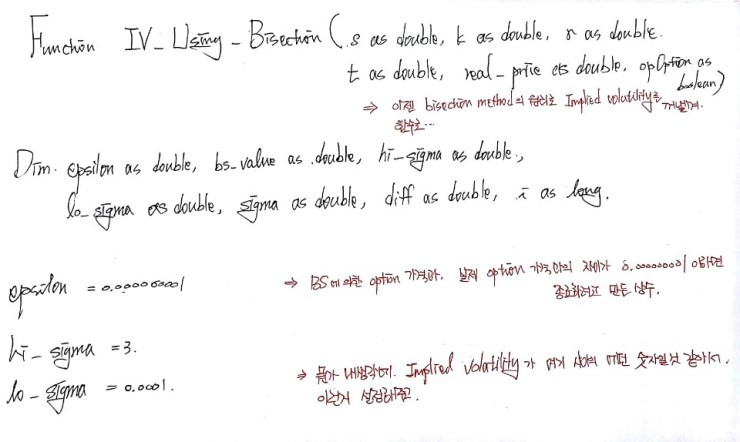 Function IV_Using_Bisection (s as double, k as double, r as double.
t as double, real_price as double, opOption as boolean)
⇒ 이젠 bisection method의 원리로 Implied volatility를
함수로…
Dim. epsilon as double, bs_value as double, hi_sigma as double,
lo_sigma as double, sigma as double, diff as double, i as long.
epsilon = 0.00000001 ⇒ BS에 의한 option 가격과. 실제 option 가격과의 차이가 0.00000001 이하면
종료하려고 만든 상수.
hi_sigma = 3.
lo_sigma = 0.0001. ⇒ Implied volatility가 여기 사이의 어떤 숫자일것 같아서.
이런거 설정해주고.